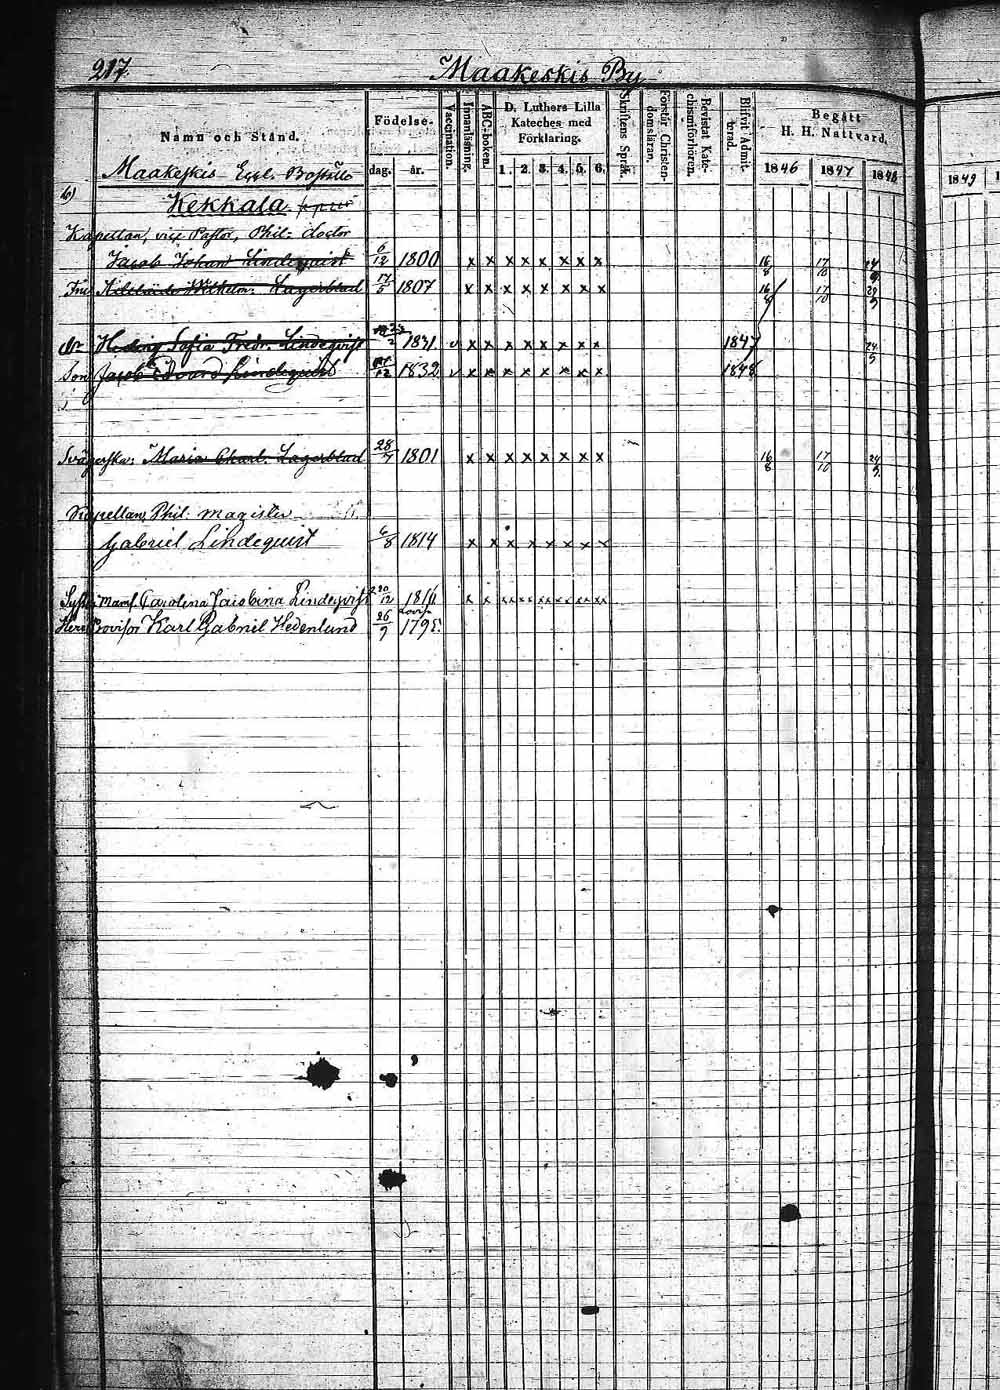 217.
Maakeskis By
Namn och Stånd.
Födelse-
dag. år.
Vaccination.
Innanläsning.
ABC-boken.
D. Luthers Lilla Kateches med Förklaring.
1. 2. 3. 4. 5. 6.
Skriftens Språk.
Förstår Christendomsläran.
Bevistat Katechismiförhören.
Blifvit Admitterad.
Begått H. H. Nattvard.
1846 1847 1848
1849
Maakeskis Eccl. Boställe
Kekkala
Kapellan, vice Pastor, Phil: doctor
Jacob Johan Lindequist 6/12 1800 x x x x x x x x 16/8 17/10
Fru Wilhelm: Lagerblad 17/5 1807 x x x x x x x x 16/8 17/10 29/5
Hedvig Sofia Fredr. Lindeqvist 1831 v x x x x x x x x 1847 24/5
Son Jacob Edvard Lindequist 1832 v x x x x x x x x 1848
Svägerska: Maria Charl. Lagerblad 28/7 1801 x x x x x x x x 16/8 17/10 24/5
Kapellan, Phil. magister
Gabriel Lindequist 6/8 1814 x x x x x x x x
Syster Mams. Carolina Jacobina Lindeqvist 20/12 1811 x x x x x x x x
Herr Provisor Karl Gabriel Hedenlund 26/9 1795.